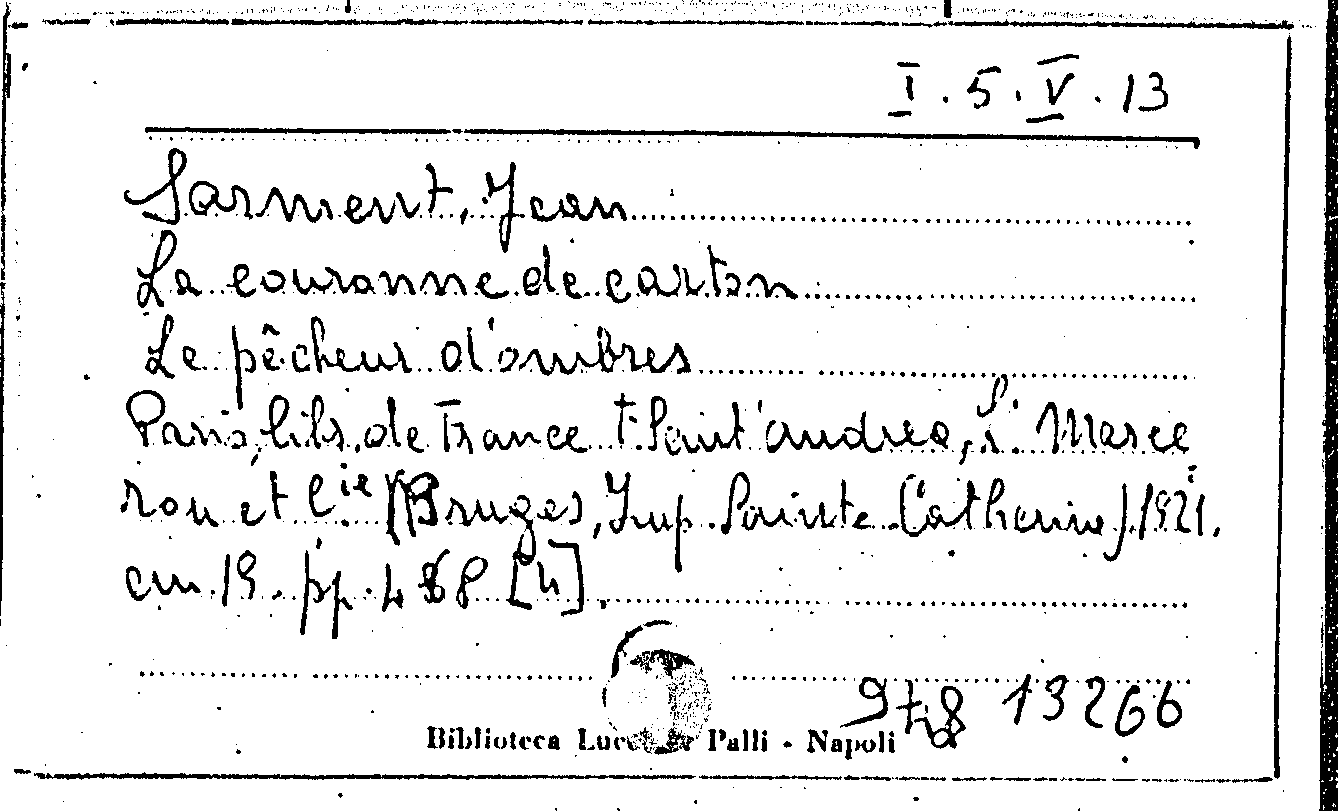 I. 5. V. 13
Sarment, Jean
La couronne de carton
Le pêcheur d'ombres
Paris, libr. de France F. Sant'andrea, L. Marce
rou et Cie (Bruges, Imp. Sainte Catherine) 1921.
cm. 19. pp. 4 [4].
13266
Biblioteca Palli - Napoli